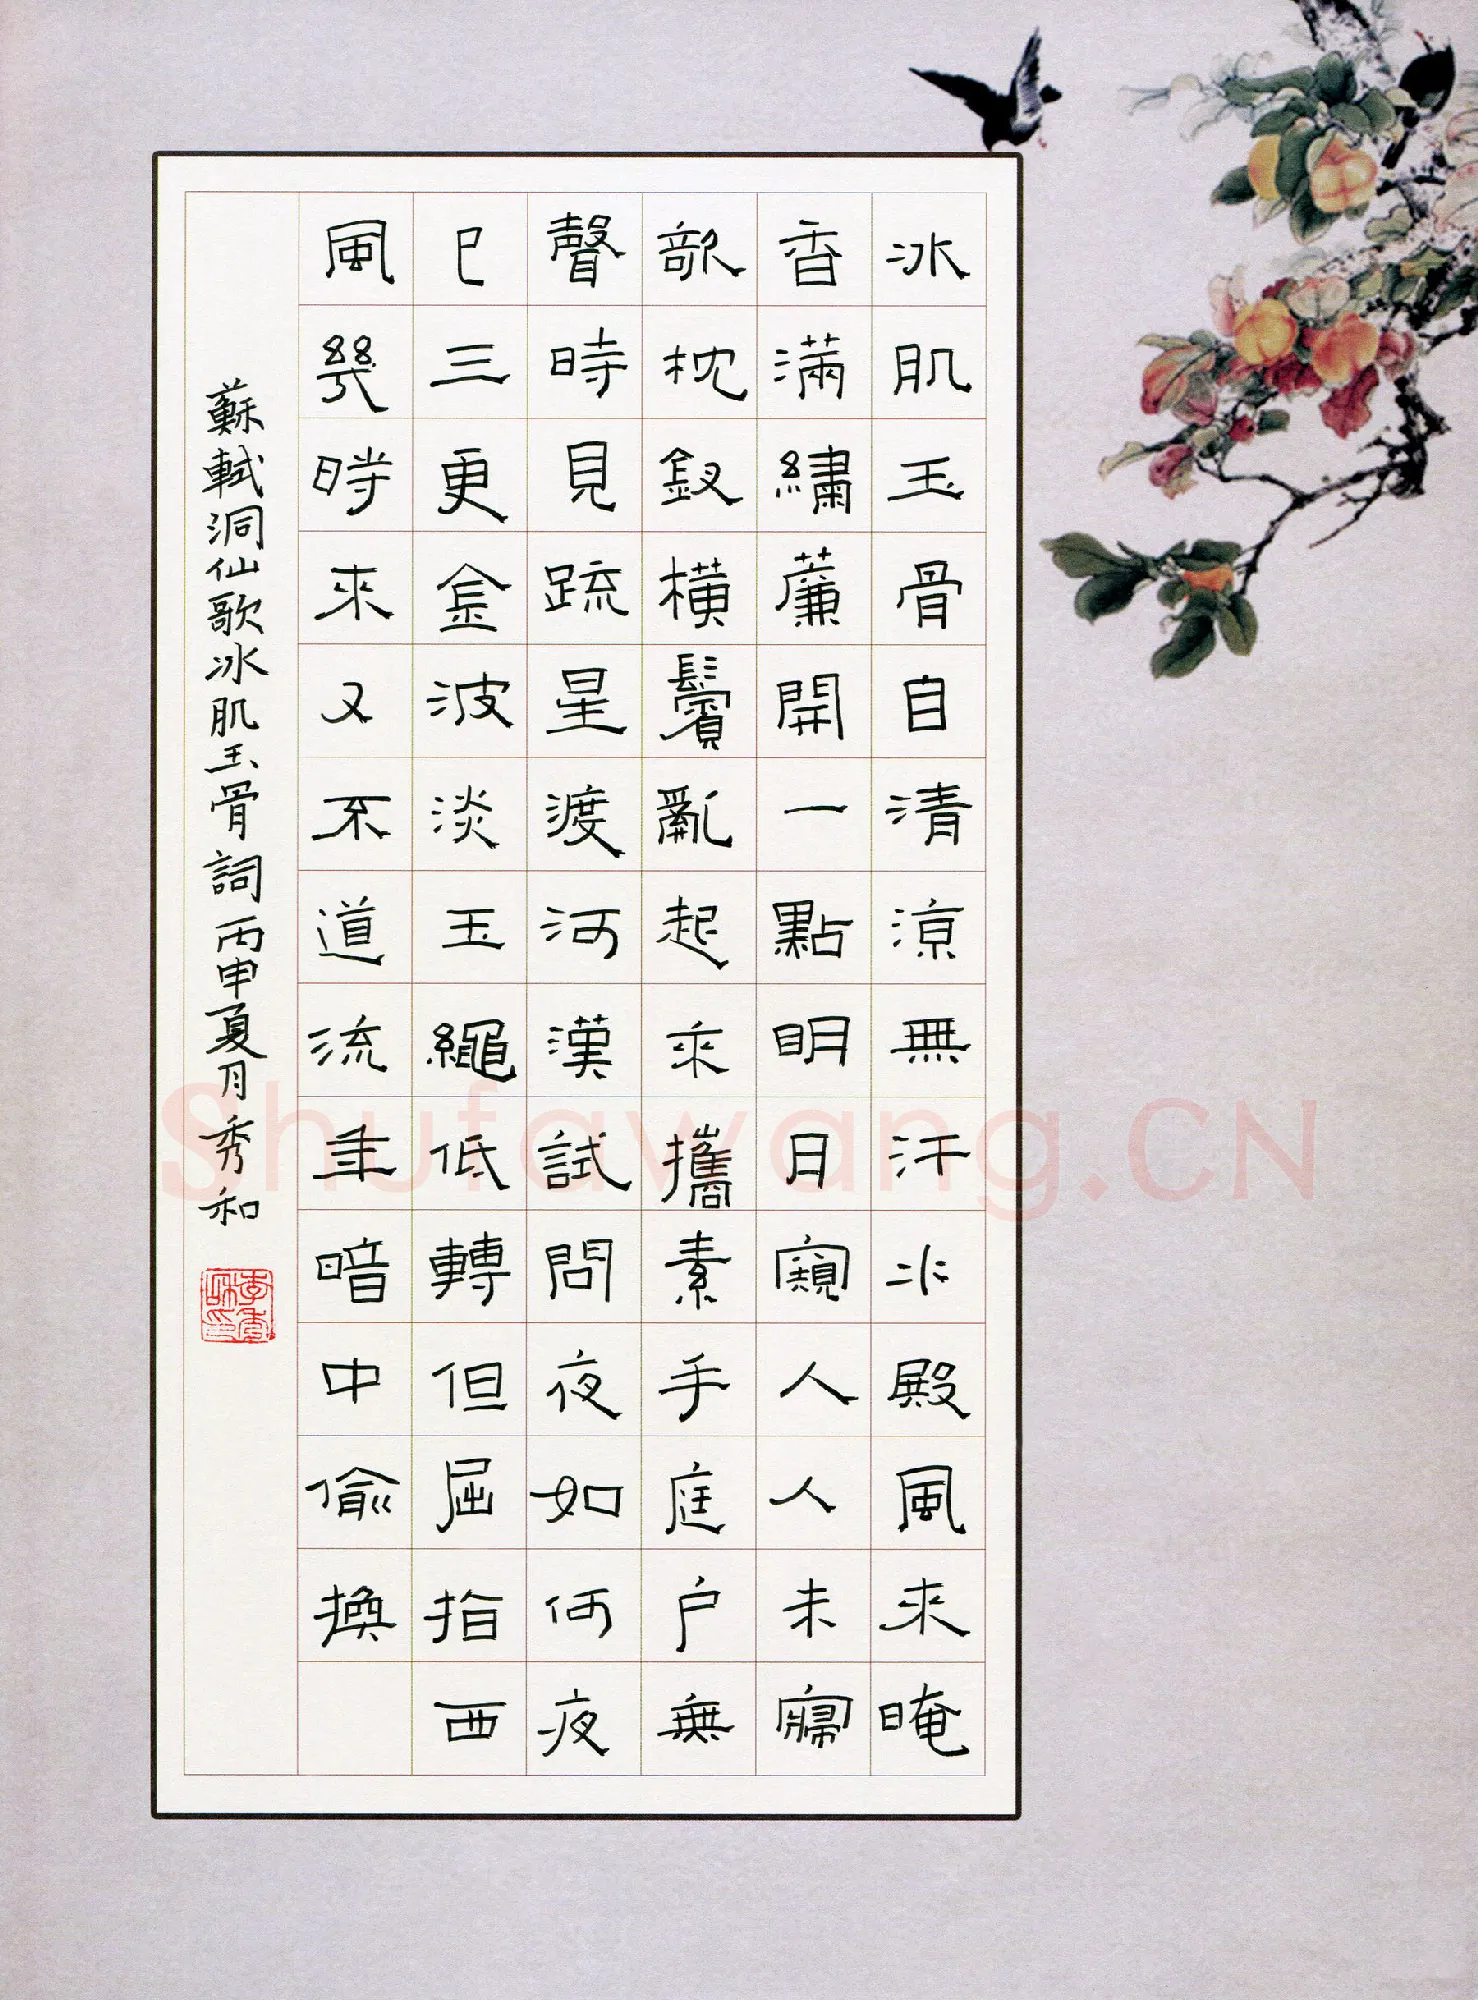 冰肌玉骨自清涼無汗水殿風來晻
香滿繡簾開一點明月窺人人未寢
欹枕釵橫鬢亂起來攜素手庭户無
聲時見疏星渡河漢試問夜如何夜
已三更金波淡玉繩低轉但屈指西
風幾時來又不道流年暗中偷換
蘇軾洞仙歌冰肌玉骨詞丙申夏月秀和
Shufawang.CN